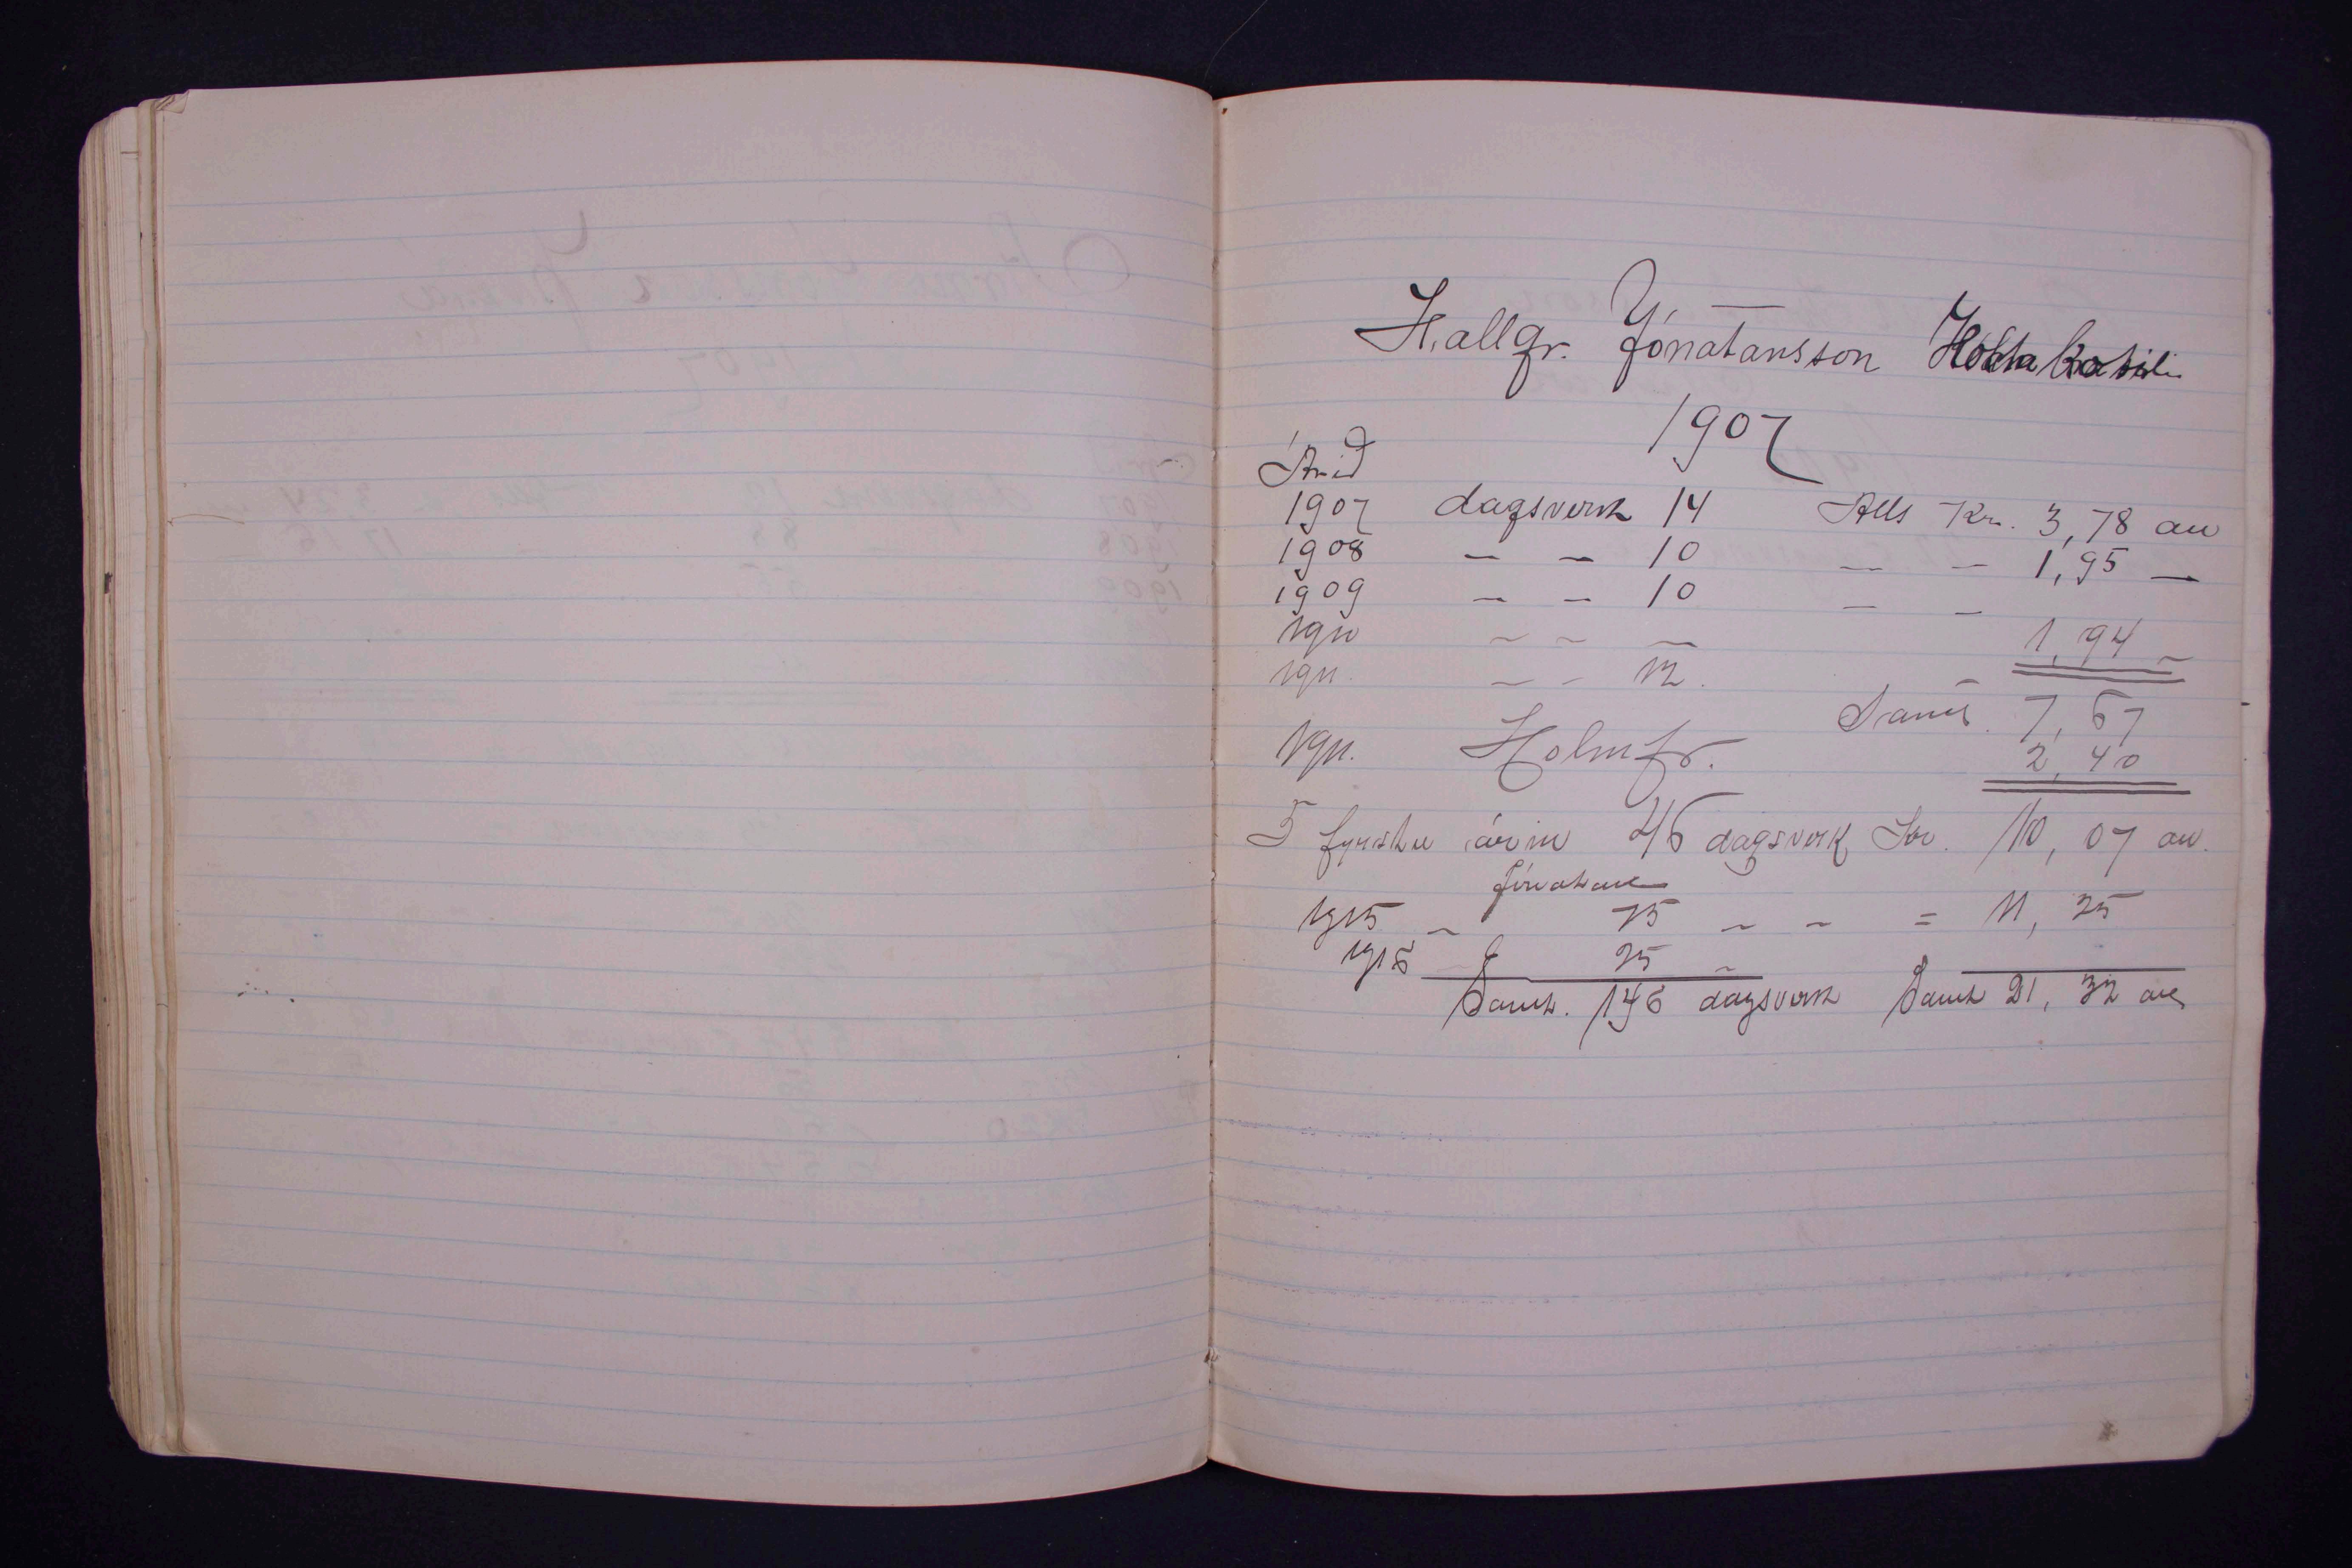 Hallgr. Jónatansson
1907
Árið
1907 dagsverk 14 Alls Kr. 3,78 au
1908 – – 10 – – 1,95 –
1909 – – 10 – –
1910 – – – 1,94 –
1911 – – 12.
Samt. 7,67
1911. Holmfr. 2,40
5 fyrstu árin 46 dagsverk Kr. 10,07 au.
Jónatan
1915 – 75 – – = 11,25
1916 25 –
Samt. 146 dagsverk Samt 21,32 au